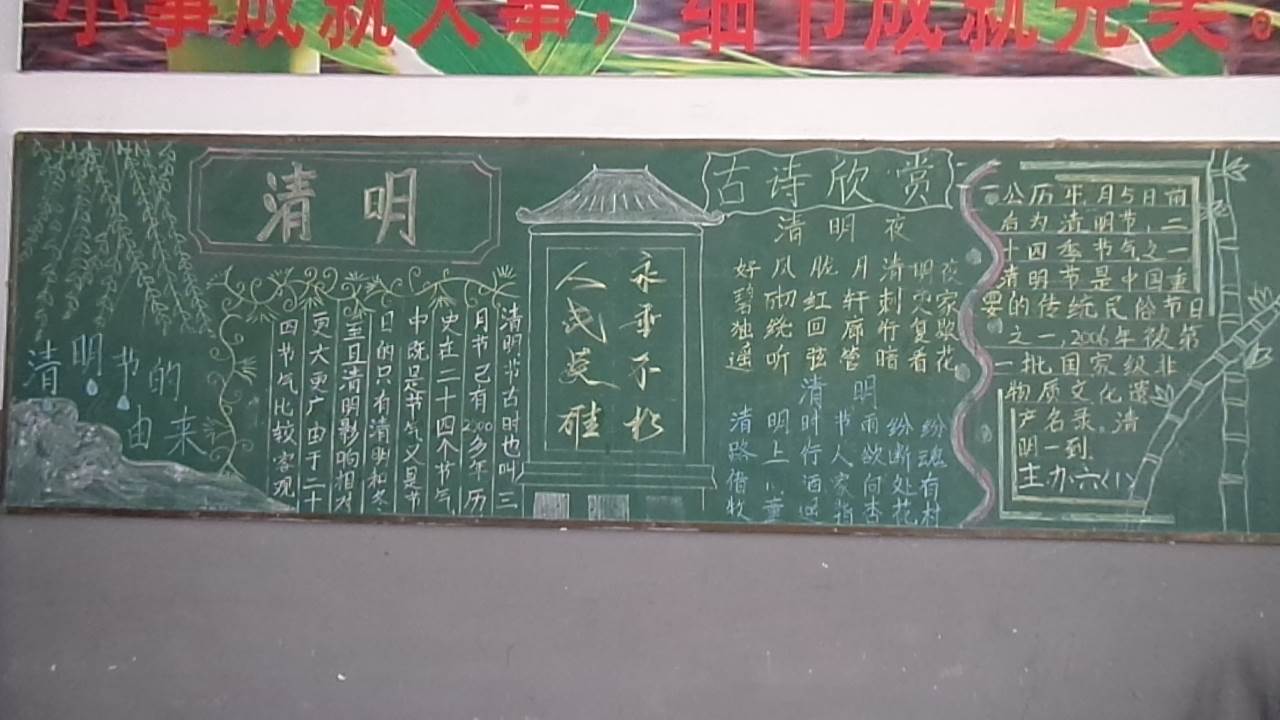 小事成就大事，细节成就完美。
清明
清明节的
由来
清明节古时也叫三
月节已有2000多年历
史在二十四个节气
中既是节气又是节
日的只有清明和冬
至且清明影响相对
更大更广由于二十
四节气比较客观
永垂不朽
人民英雄
古诗欣赏
清明夜
好风胧月清明夜
碧砌红轩刺史家
独绕回廊行复歇
遥听弦管暗看花
清明
清明时节雨纷纷
路上行人欲断魂
借 酒家 何处有
牧童 指杏花村
公历 月5日前
后为清明节，二
十四季节气之一
清明节是中国重
要的传统民俗节日
之一，2006年被第
一批国家级非
物质文化遗
产名录。清
明一到.
主办六(1)